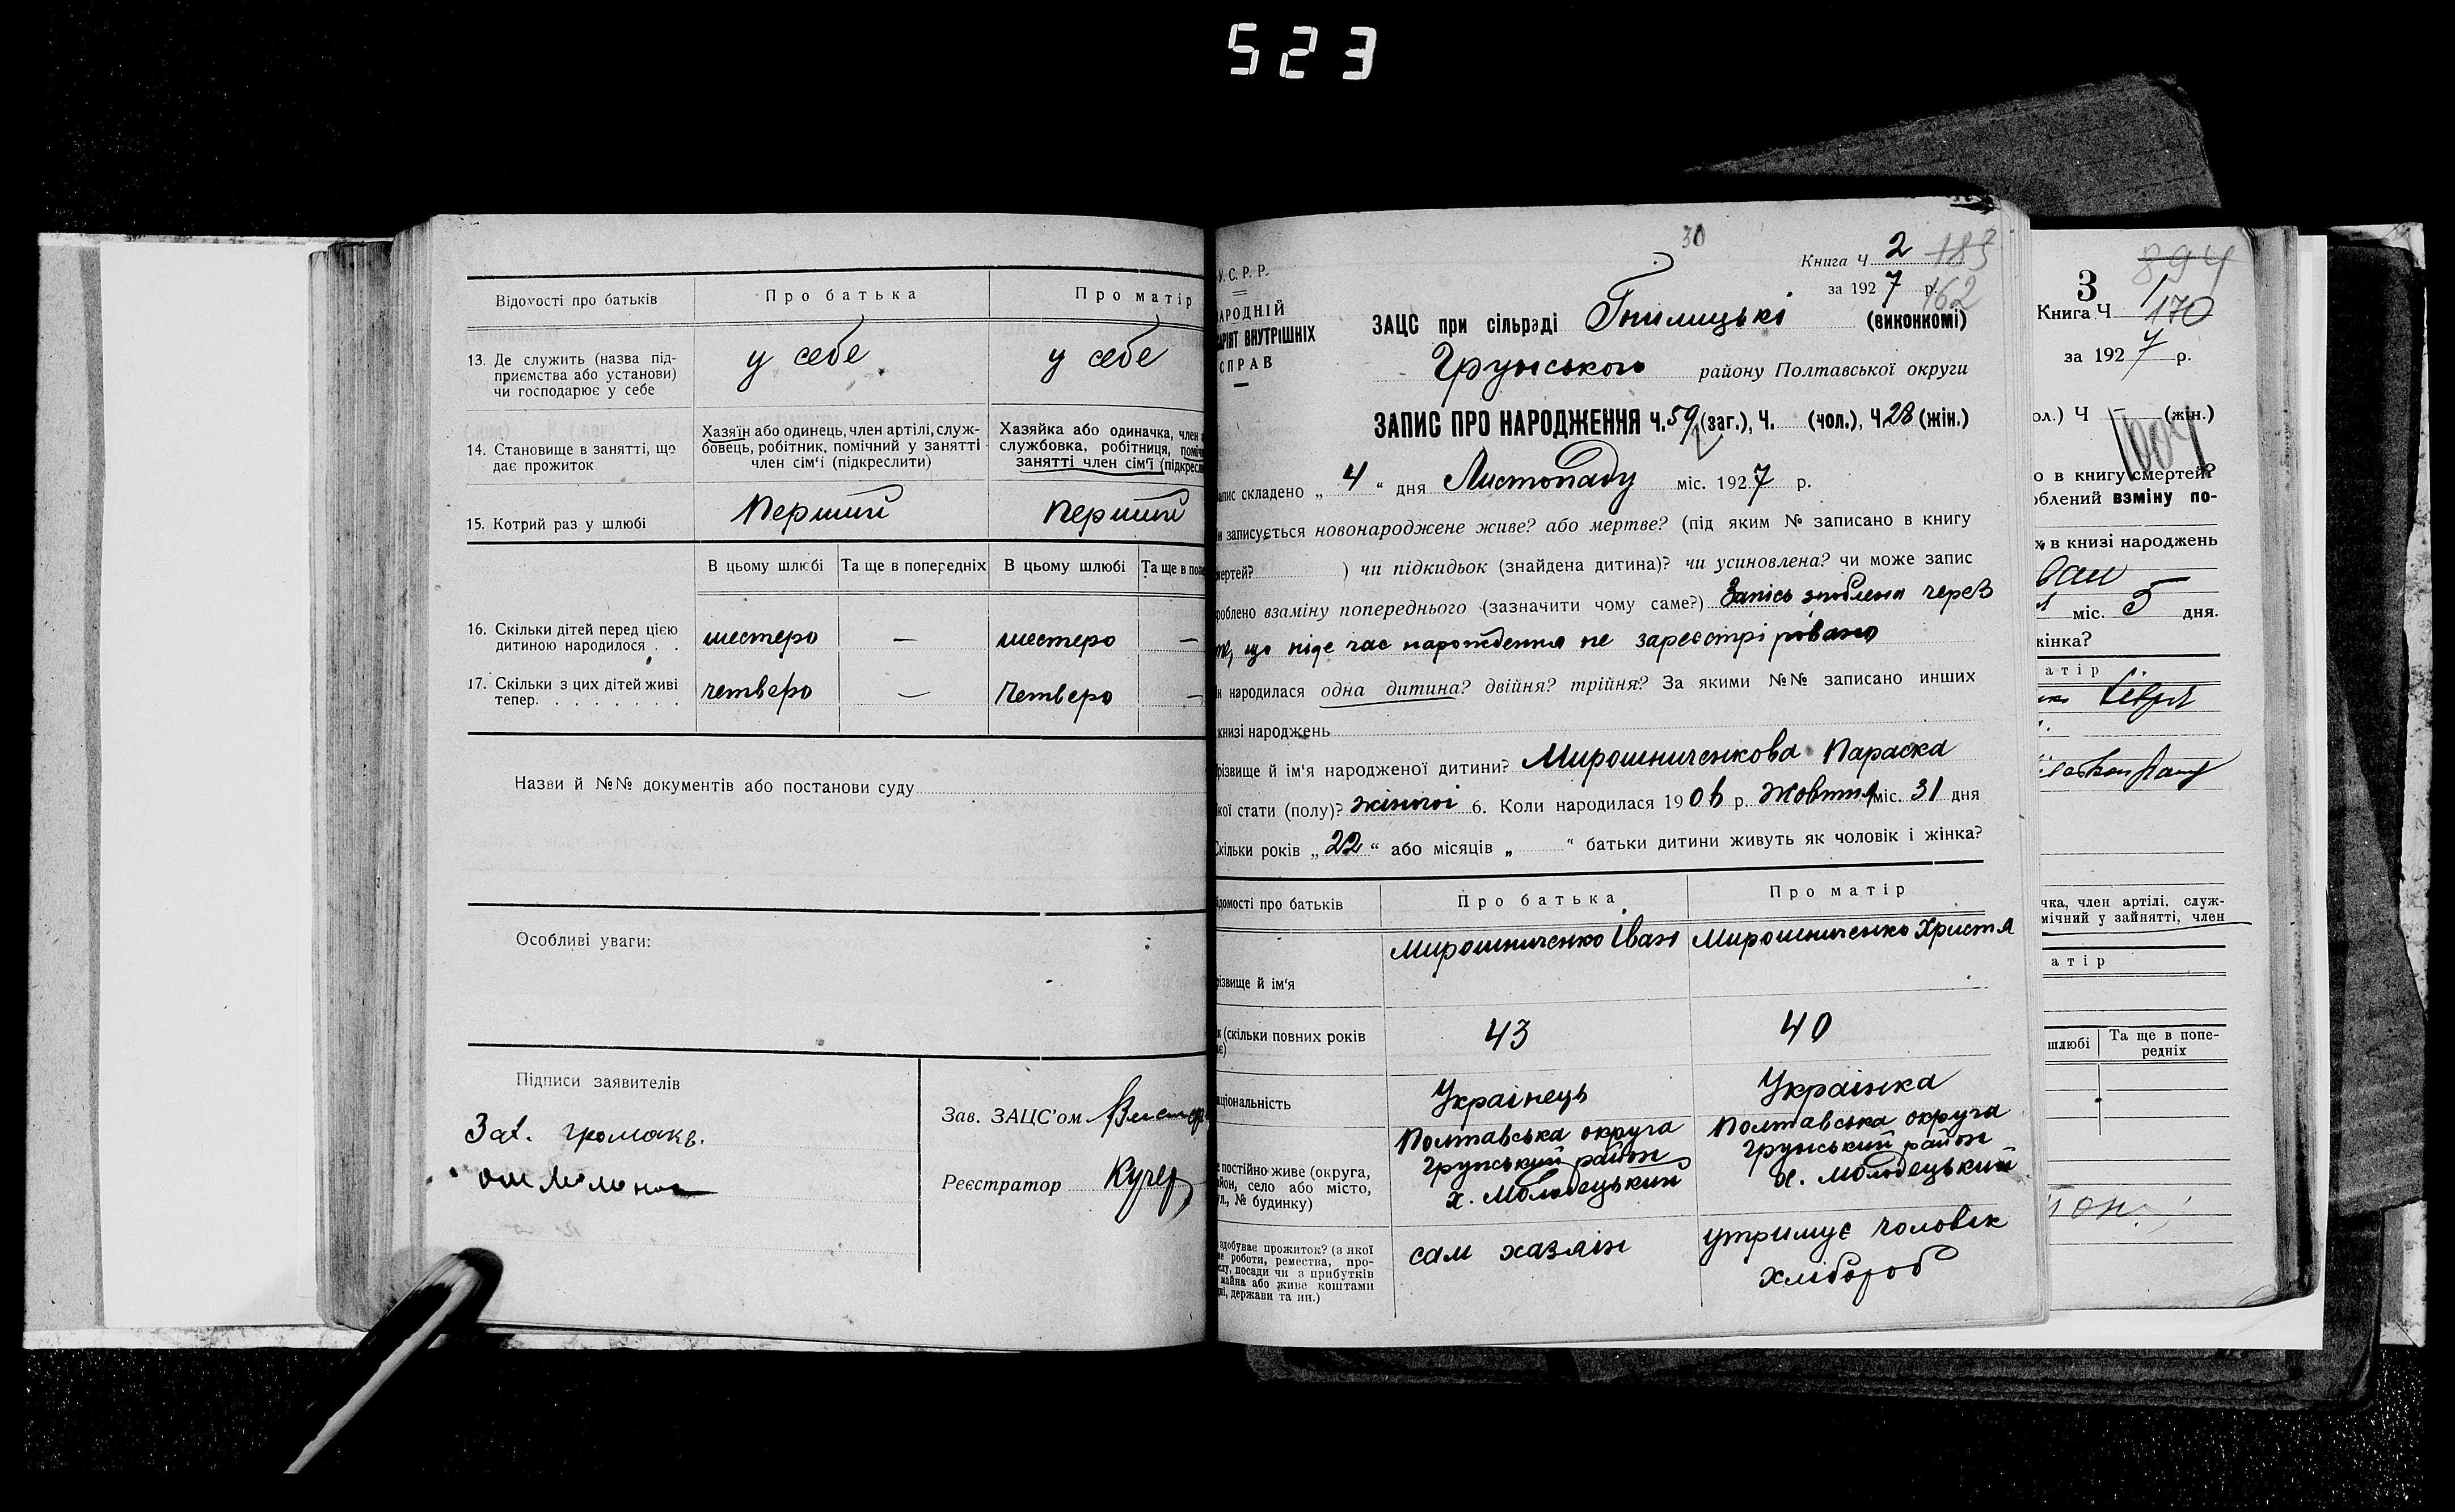 523
Відомості про батьків
Про батька
Про матір
13. Де служить (назва під-
приємства або установи)
чи господарює у себе
у себе
у себе
14. Становище в занятті, що
дає прожиток
Хазяїн або одинець, член артілі, служ-
бовець, робітник, помічний у занятті
член сім'ї (підкреслити)
Хазяйка або одиначка, член
службовка, робітниця,
занятті член сім'ї
15. Котрий раз у шлюбі
Перший
Перший
В цьому шлюбі
Та ще в попередніх
В цьому шлюбі
Та ще в
16. Скільки дітей перед цією
дитиною народилося . .
шестеро
—
шестеро
—
17. Скільки з цих дітей живі
тепер. . . . . . . .
четверо
—
четверо
—
Назви й №№ документів або постанови суду
Особливі уваги:
Підписи заявителів
Зав. ЗАЦС'ом
Реєстратор Кучер
30
Книга Ч 2
183
за 1927 р.
162
У.С.Р.Р.
ВНУТРІШНІХ
СПРАВ
ЗАЦС при сільраді Гнилицькі (виконкомі)
Грунського району Полтавської округи
ЗАПИС ПРО НАРОДЖЕННЯ Ч. 59 (заг.), Ч. (чол.), Ч 28 (жін.)
складено „ 4 “ дня Листопаду міс. 1927 р.
записується новонароджене живе? або мертве? (під яким № записано в книгу
) чи підкидьок (знайдена дитина)? чи усиновлена? чи може запис
взаміну попереднього (зазначити чому саме?) Запісь зроблена через
що піде час народження не зареєстріровано
народилася одна дитина? двійня? трійня? За якими №№ записано инших
книзі народжень
й ім'я народженої дитини? Мирошниченкова Параска
стати (полу)? жіночої 6. Коли народилася 1906 р. Жовтня міс. 31 дня
років „ 22 “ або місяців „ “ батьки дитини живуть як чоловік і жінка?
про батьків
Про батька
Про матір
й ім'я
Мирошниченко Іван
Мирошниченко Христя
(скільки повних років
43
40
Українець
Українка
постійно живе (округа,
село або місто,
№ будинку)
Полтавська округа
Грунський район
х. Молодецький
Полтавська округа
Грунський район
х. Молодецький
здобуває прожиток? (з якої
роботи, ремества, про-
посади чи з прибутків
майна або живе коштами
держави та ин.)
сам хазяін
утримує чоловік
хлібороб
894
3
Книга Ч 1
170
за 1927 р.
Ч — (жін.)
1004
в книгу смертей?
взміну по-
в книзі народжень
міс. 5 дня.
жінка?
член артілі, служ-
у зайнятті, член
шлюбі
Та ще в попе-
редніх